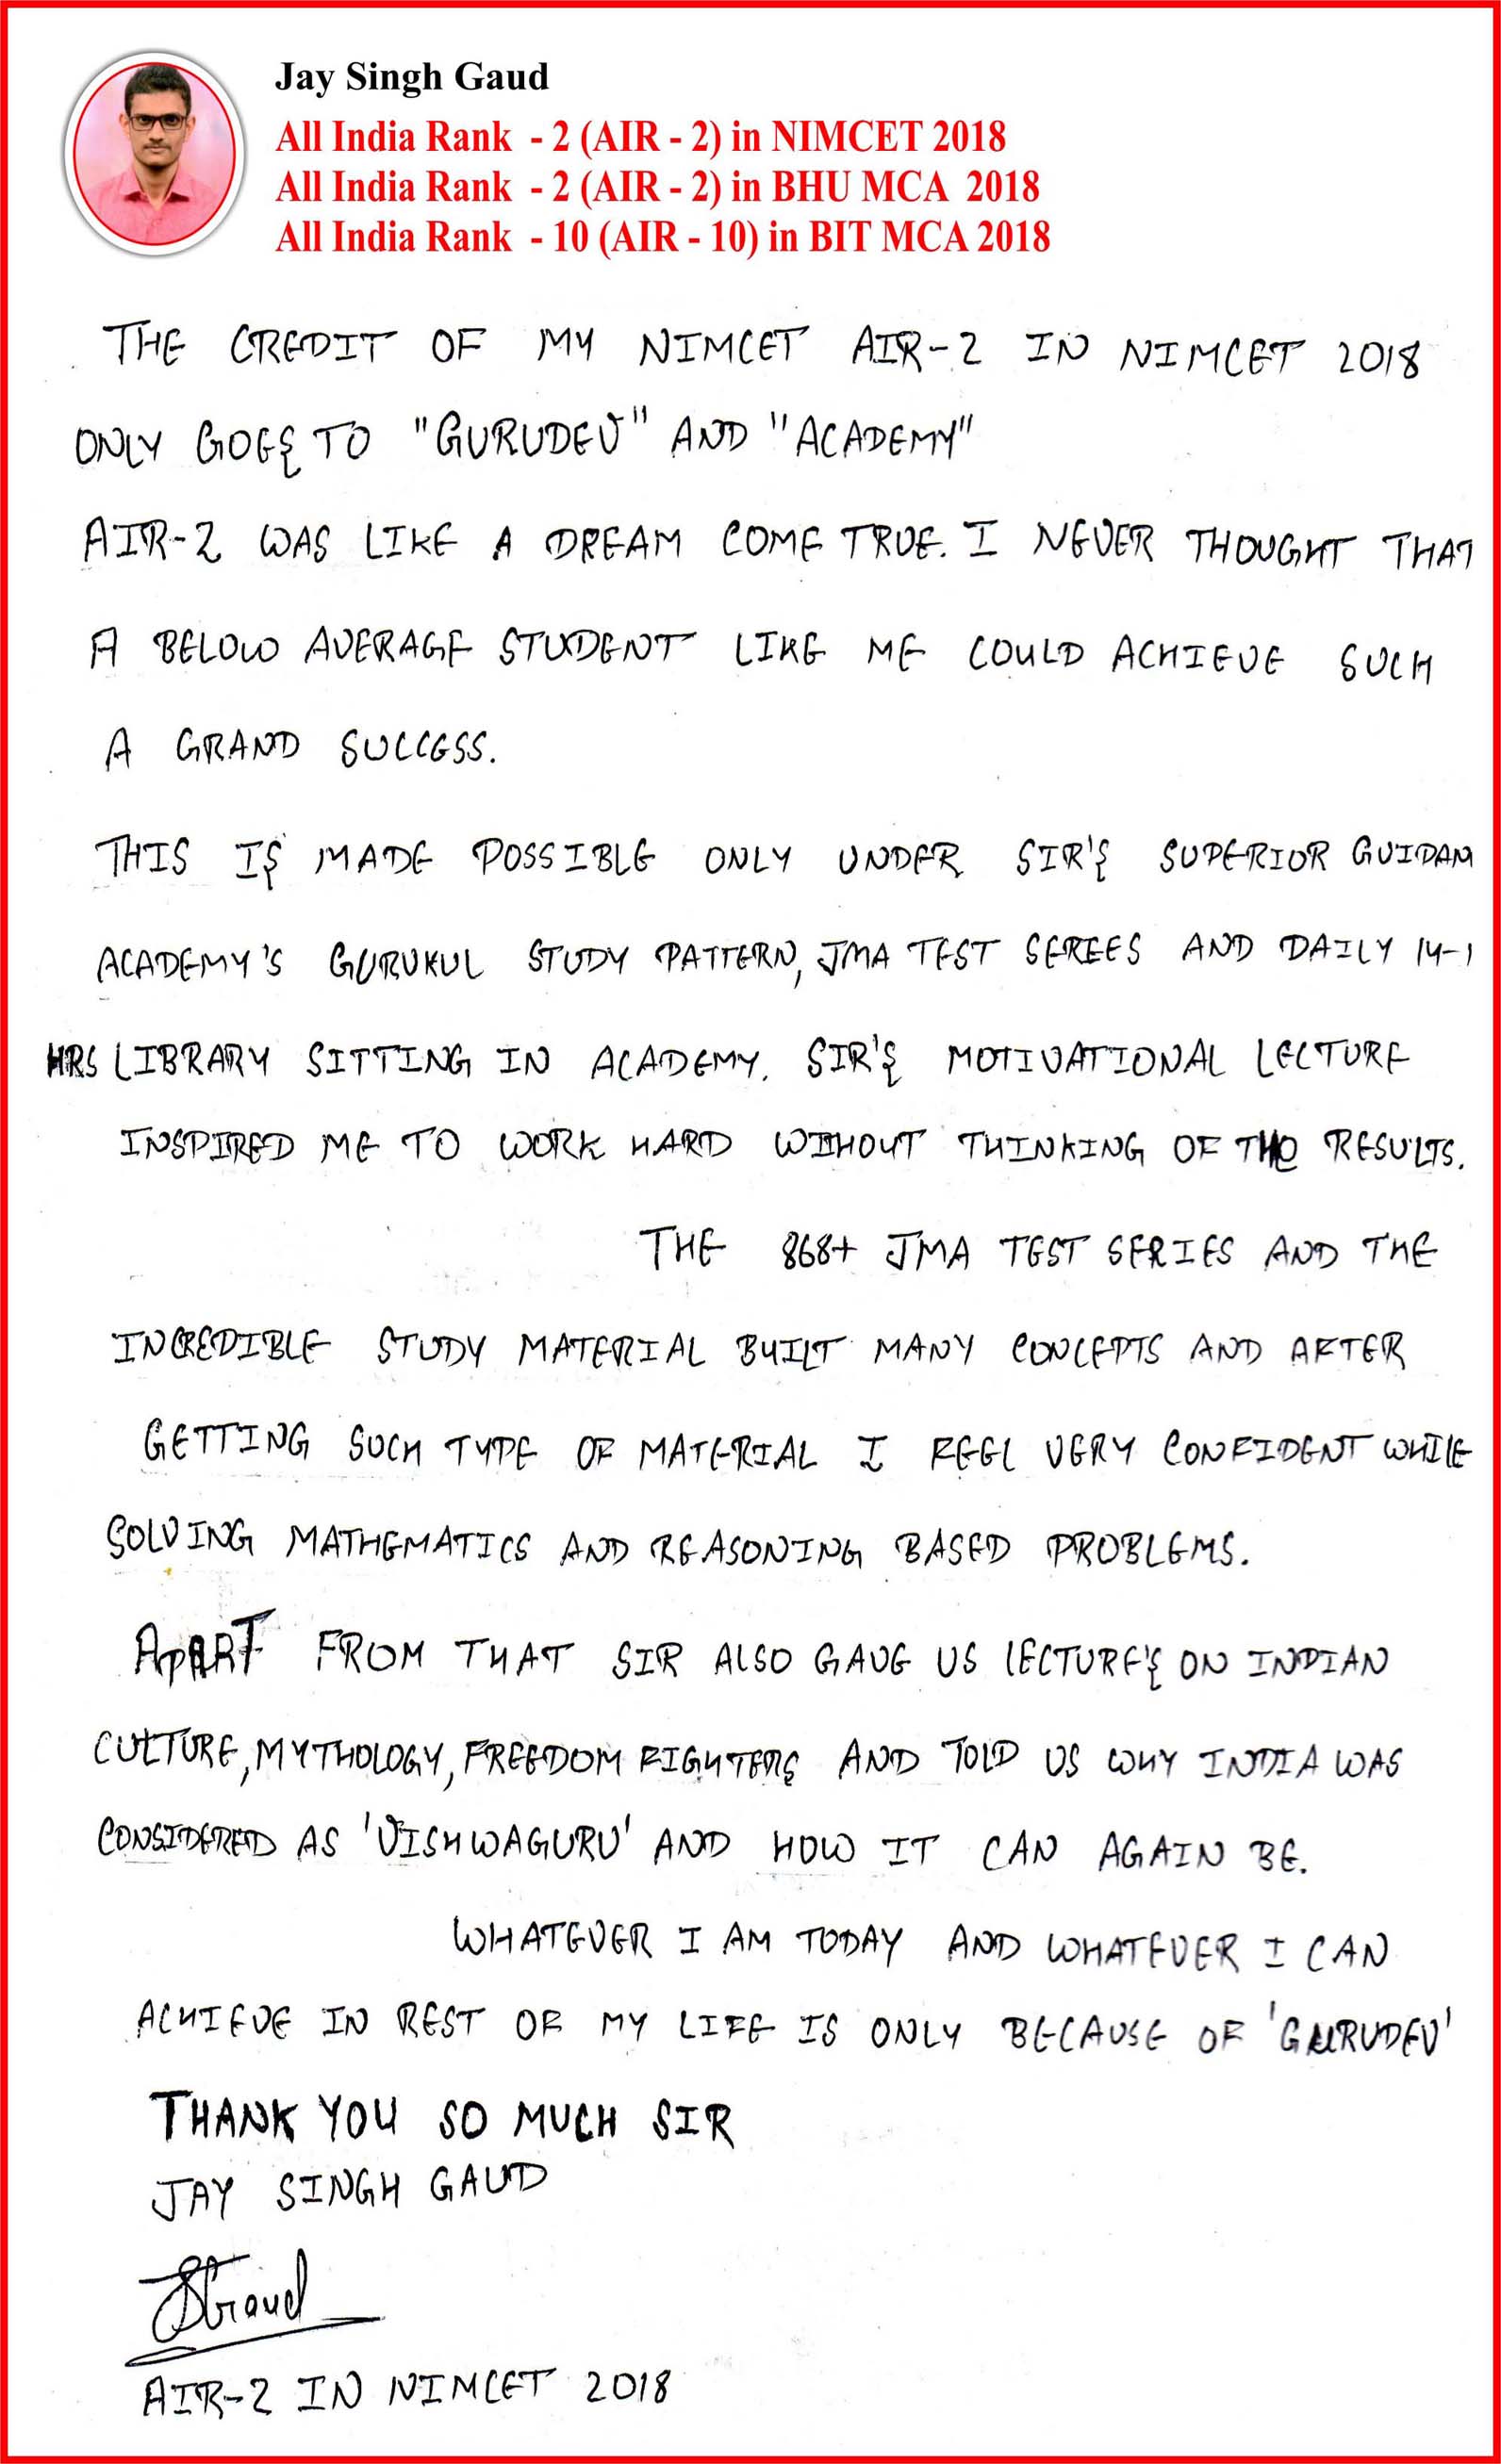 Jay Singh Gaud
All India Rank - 2 (AIR - 2) in NIMCET 2018
All India Rank - 2 (AIR - 2) in BHU MCA 2018
All India Rank - 10 (AIR - 10) in BIT MCA 2018
THE CREDIT OF MY NIMCET AIR-2 IN NIMCET 2018
ONLY GOES TO "GURUDEV" AND "ACADEMY"
AIR-2 WAS LIKE A DREAM COME TRUE. I NEVER THOUGHT THAT
A BELOW AVERAGE STUDENT LIKE ME COULD ACHIEVE SUCH
A GRAND SUCCESS.
THIS IS MADE POSSIBLE ONLY UNDER SIR'S SUPERIOR GUIDAN
ACADEMY'S GURUKUL STUDY PATTERN, JMA TEST SEREES AND DAILY 14-1
HRS LIBRARY SITTING IN ACADEMY. SIR'S MOTIVATIONAL LECTURE
INSPIRED ME TO WORK HARD WITHOUT THINKING OF RESULTS.
THE 868+ JMA TEST SERIES AND THE
INCREDIBLE STUDY MATERIAL BUILT MANY CONCEPTS AND AFTER
GETTING SUCH TYPE OF MATERIAL I FEEL VERY CONFIDENT WHILE
SOLVING MATHEMATICS AND REASONING BASED PROBLEMS.
APART FROM THAT SIR ALSO GAVE US LECTURE'S ON INDIAN
CULTURE, MYTHOLOGY, FREEDOM FIGHTERS AND TOLD US WHY INDIA WAS
CONSIDERED AS 'VISHWAGURU' AND HOW IT CAN AGAIN BE.
WHATEVER I AM TODAY AND WHATEVER I CAN
ACHIEVE IN REST OF MY LIFE IS ONLY BECAUSE OF 'GURUDEV'
THANK YOU SO MUCH SIR
JAY SINGH GAUD
JSGaud
AIR-2 IN NIMCET 2018